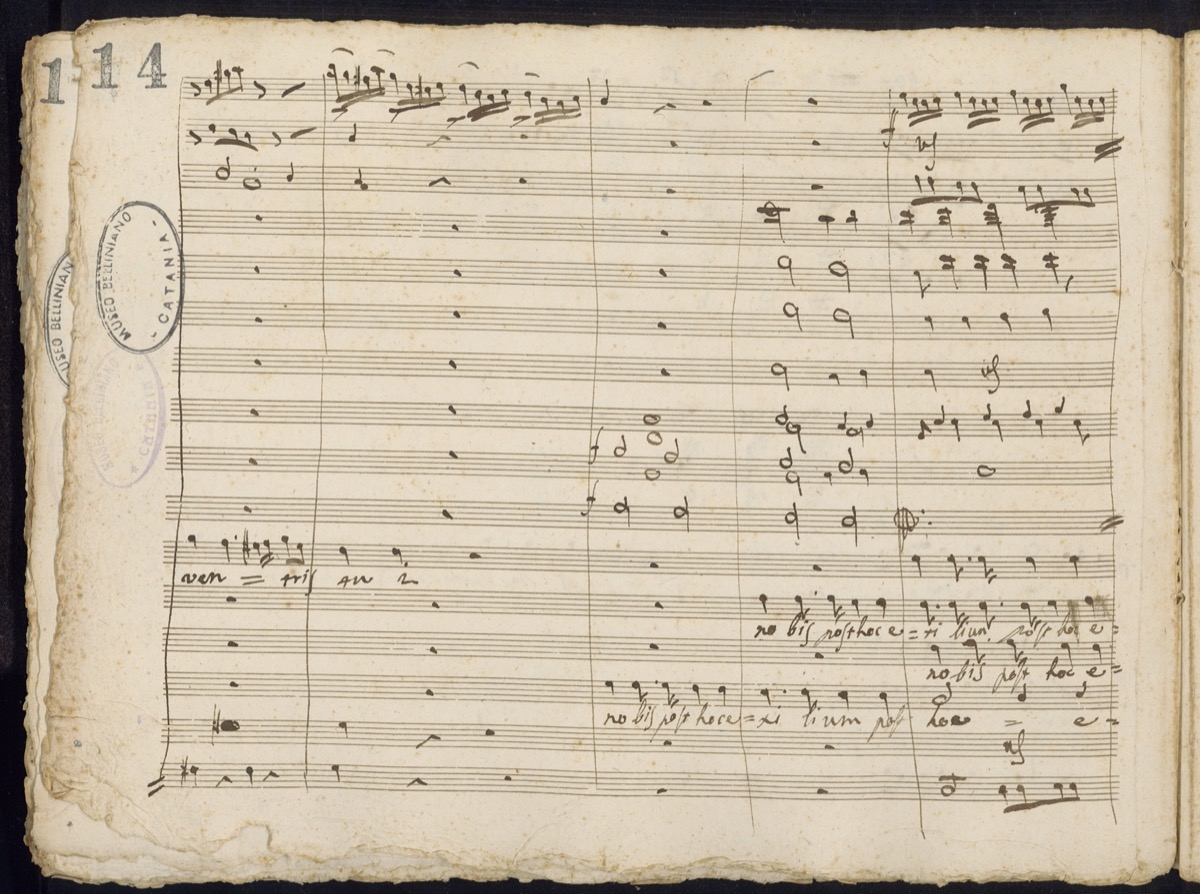 1 14
MUSEO BELLINIANO
- CATANIA -
USEO BELLINIAN
CATANIA
f
f
f
ven = tris tu i
no bis post hoc e = xi lium post hoc e =
no bis post hoc e =
no bis post hoc e = xi lium post hoc = e =